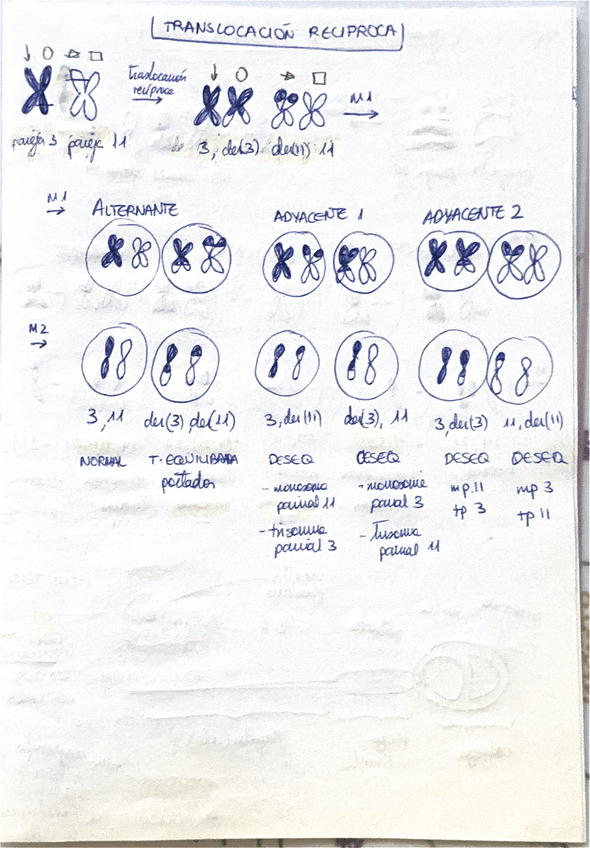 TRANSLOCACIÓN RECIPROCA
Traslocación
recíproca
M1
pareja 3 pareja 11
3, der(3) der(11) 11
M1
ALTERNANTE ADYACENTE 1 ADYACENTE 2
M2
3, 11 der(3) der(11) 3, der(11) der(3), 11 3, der(3) 11, der(11)
NORMAL T. EQUILIBRADA DESEQ DESEQ DESEQ DESEQ
portador
- monosomia
parcial 11
- trisomia
parcial 3
- monosomia
parcial 3
- Trisomia
parcial 11
mp. 11
tp 3
mp 3
tp 11